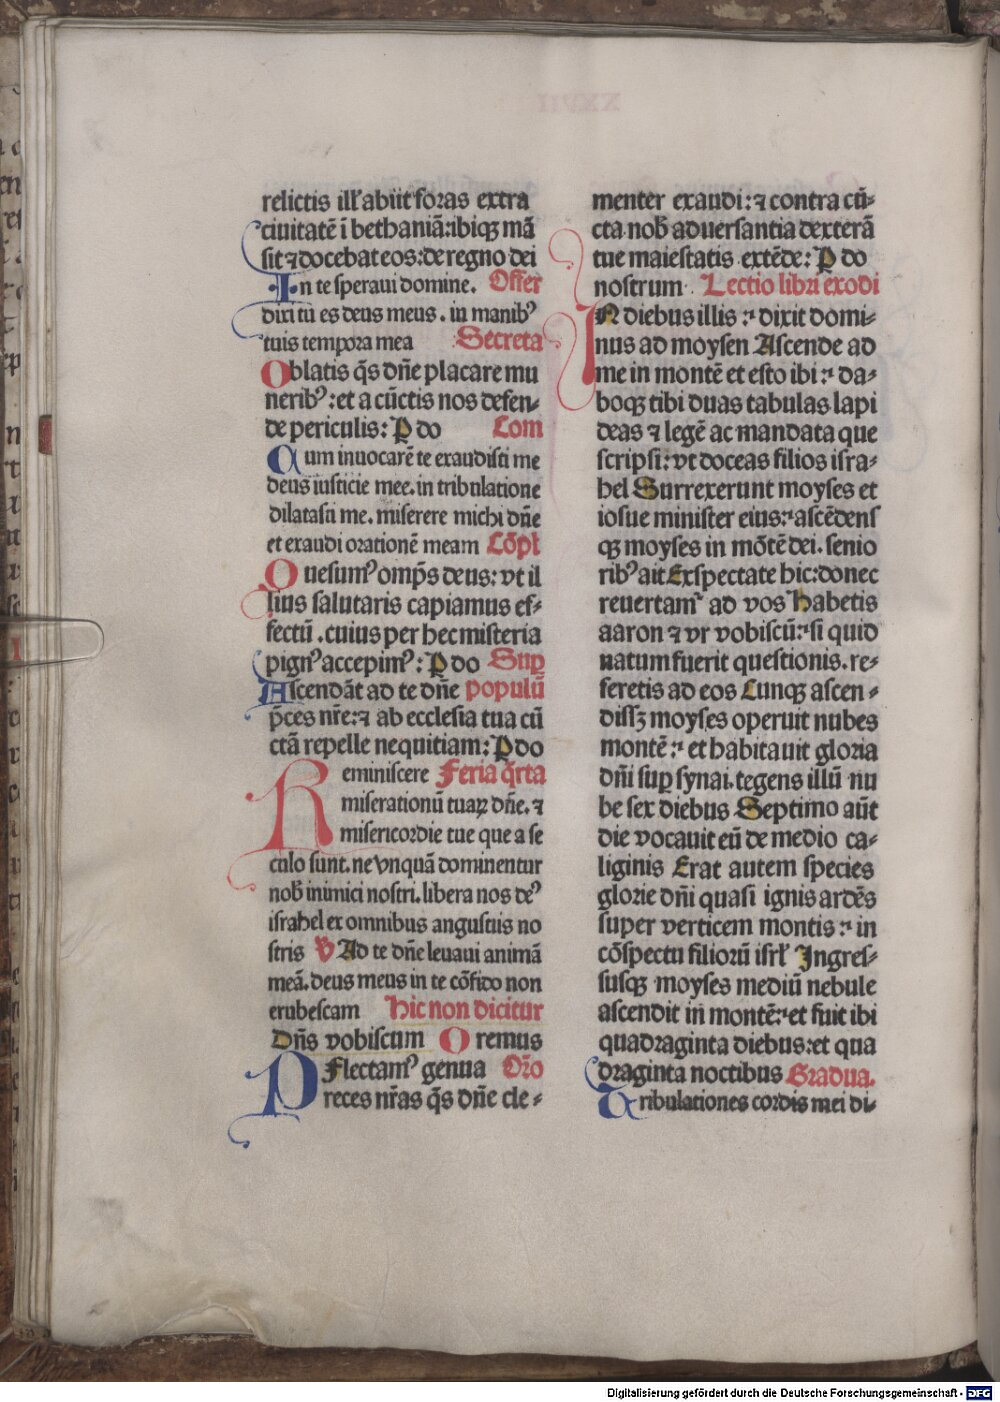 relictis ill' abiit foras extra
ciuitatē ī bethaniā: ibiqꝫ mā
sit ⁊ docebat eos: de regno dei
In te speraui domine. Offer
dixi tu es deus meus. in manibꝰ
tuis tempora mea Secreta
Oblatis q̄s dn̄e placare mu
neribꝰ: et a cūctis nos defen-
de periculis: P do Com
Cum inuocarē te exaudisti me
deus iusticie mee. in tribulatione
dilatasti me. miserere michi dn̄e
et exaudi orationē meam Cōpl
Quesumꝰ omp̄s deus: vt il
lius salutaris capiamus ef-
fectū. cuius per hec misteria
pignꝰ accepimꝰ: P do Suꝑ
Ascendāt ad te dn̄e populū
p̄ces nr̄e: ⁊ ab ecclesia tua cū
ctā repelle nequitiam: P do
Reminiscere Feria q̄rta
miserationū tuaꝝ dn̄e. ⁊
misericordie tue que a se
culo sunt. ne vnquā dominentur
nob̄ inimici nostri. libera nos deꝰ
israhel ex omnibus angustiis no
stris V Ad te dn̄e leuaui animā
meā. deus meus in te cōfido non
erubescam hic non dicitur
Dn̄s vobiscum Oremus
Flectamꝰ genua Orō
Preces nr̄as q̄s dn̄e cle-
menter exaudi: ⁊ contra cū-
cta nob̄ aduersantia dexterā
tue maiestatis extēde: P do
nostrum Lectio libri exodi
IN diebus illis: dixit domi-
nus ad moysen Ascende ad
me in montē et esto ibi: da-
boqꝫ tibi duas tabulas lapi
deas ⁊ legē ac mandata que
scripsi: vt doceas filios isra-
hel Surrexerunt moyses et
iosue minister eius: ascēdens
qꝫ moyses in mōtē dei. senio
ribꝰ ait Exspectate hic: donec
reuertamʳ ad vos habetis
aaron ⁊ vr vobiscū: si quid
natum fuerit questionis. re-
feretis ad eos Cunqꝫ ascen-
dissꝫ moyses operuit nubes
montē: et habitauit gloria
dn̄i suꝑ synai. tegens illū nu
be sex diebus Septimo aūt
die vocauit eū de medio ca-
liginis Erat autem species
glorie dn̄i quasi ignis ardēs
super verticem montis: in
cōspectu filiorū isrl' Ingres-
susqꝫ moyses mediū nebule
ascendit in montē: et fuit ibi
quadraginta diebus: et qua
draginta noctibus Gradua.
Tribulationes cordis mei di-
Digitalisierung gefördert durch die Deutsche Forschungsgemeinschaft - DFG